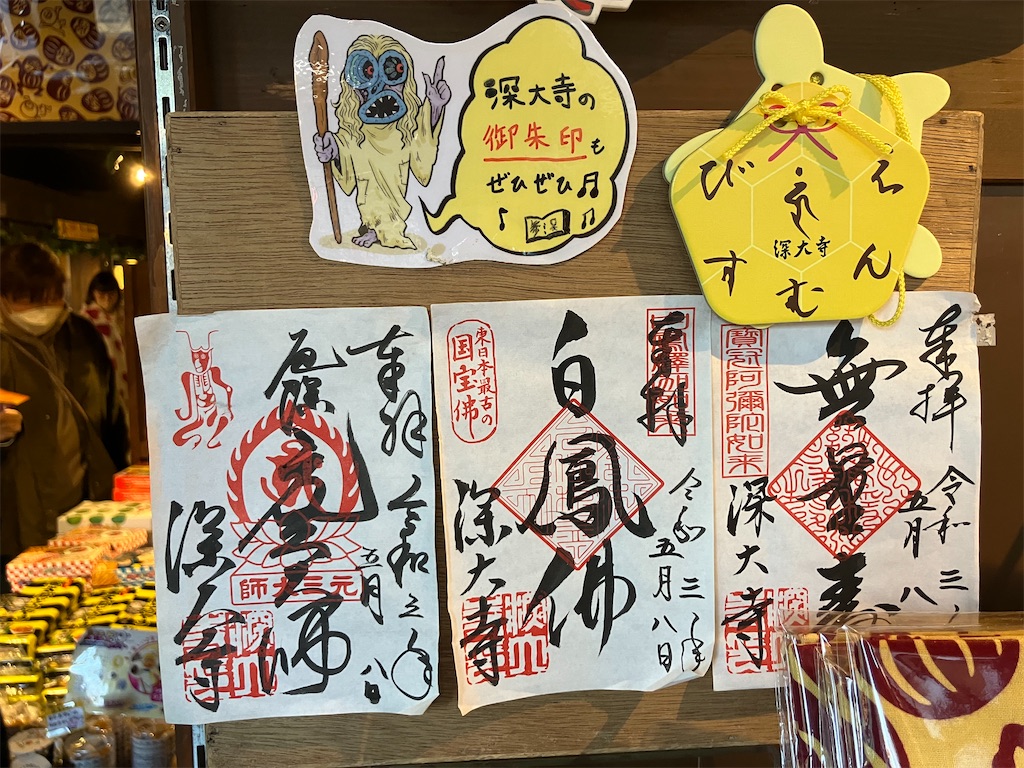 深大寺の
御朱印も
ぜひぜひ
びすむんえ
深大寺
奉拝
元三大師
令和三年
五月
八日
深大寺
元三大師
東日本最古の
国宝佛
奉拝
白鳳佛
令和三年
五月八日
深大寺
奉拝
寳冠阿彌陀如来
無量壽
令和三
五月八
深大寺